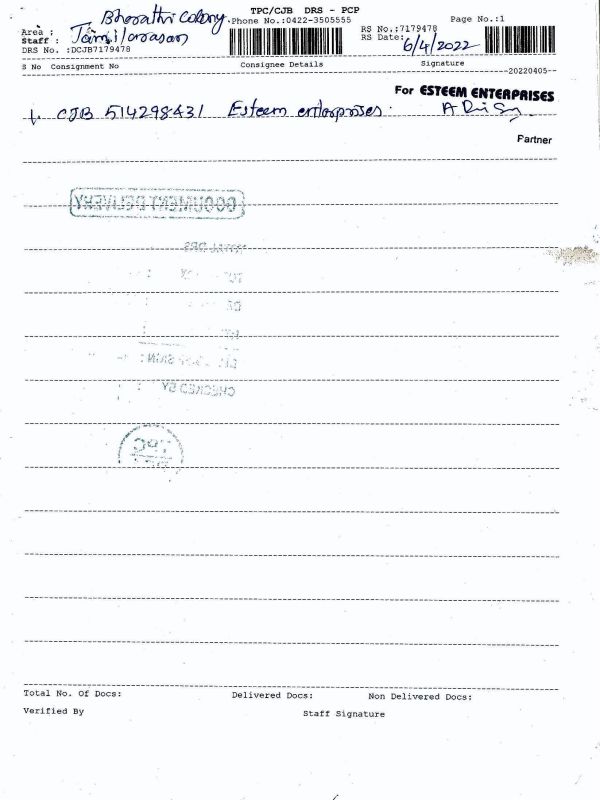 Bharathi Colony
TPC/CJB DRS - PCP
Page No.:1
Area :
Phone No.:0422-3505555
RS No.:7179478
Staff : Tamilarasan
RS Date: 6/4/2022
DRS No. :DCJB7179478
S No Consignment No Consignee Details Signature
--20220405--
For ESTEEM ENTERPRISES
1. CJB 514298431 Esteem enterprises.
Partner
DOCUMENT DELIVERY
TOTAL DRS
CHECKED BY
TPC
Total No. Of Docs: Delivered Docs: Non Delivered Docs:
Verified By Staff Signature